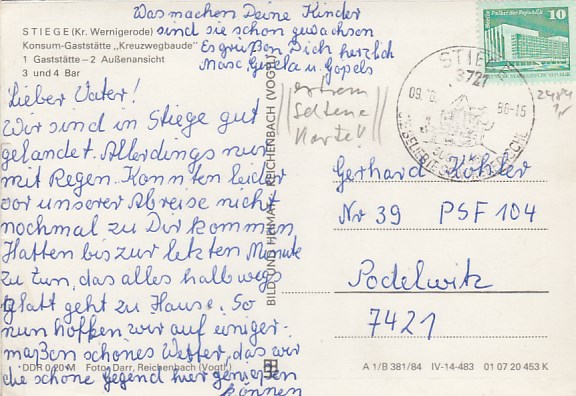 Was machen Deine Kinder
sind sie schon gewachsen
Es grüßen Dich herzlich
Gisela u. Göpels
STIEGE (Kr. Wernigerode)
Konsum-Gaststätte „Kreuzwegbaude"
1 Gaststätte – 2 Außenansicht
3 und 4 Bar
Lieber Vater!
Wir sind in Stiege gut
gelandet. Allerdings nur
mit Regen. Konnten leider
vor unserer Abreise nicht
nochmal zu Dir kommen
Hatten bis zur letzten Minute
zu tun, das alles halbwegs
glatt geht zu Hause. So
nun hoffen wir auf einiger-
maßen schönes Wetter, das wir
die schöne Gegend hier genießen
können
DDR 0,20 M Foto: Darr, Reichenbach (Vogtl.)
BILD UND HEIMAT REICHENBACH (VOGTL)
extrem
seltene
Karte!
10
STIEGE
3721
86-15
Gerhard Köhler
Nr 39 PSF 104
Podelwitz
7421
A 1/B 381/84 IV-14-483 01 07 20 453 K